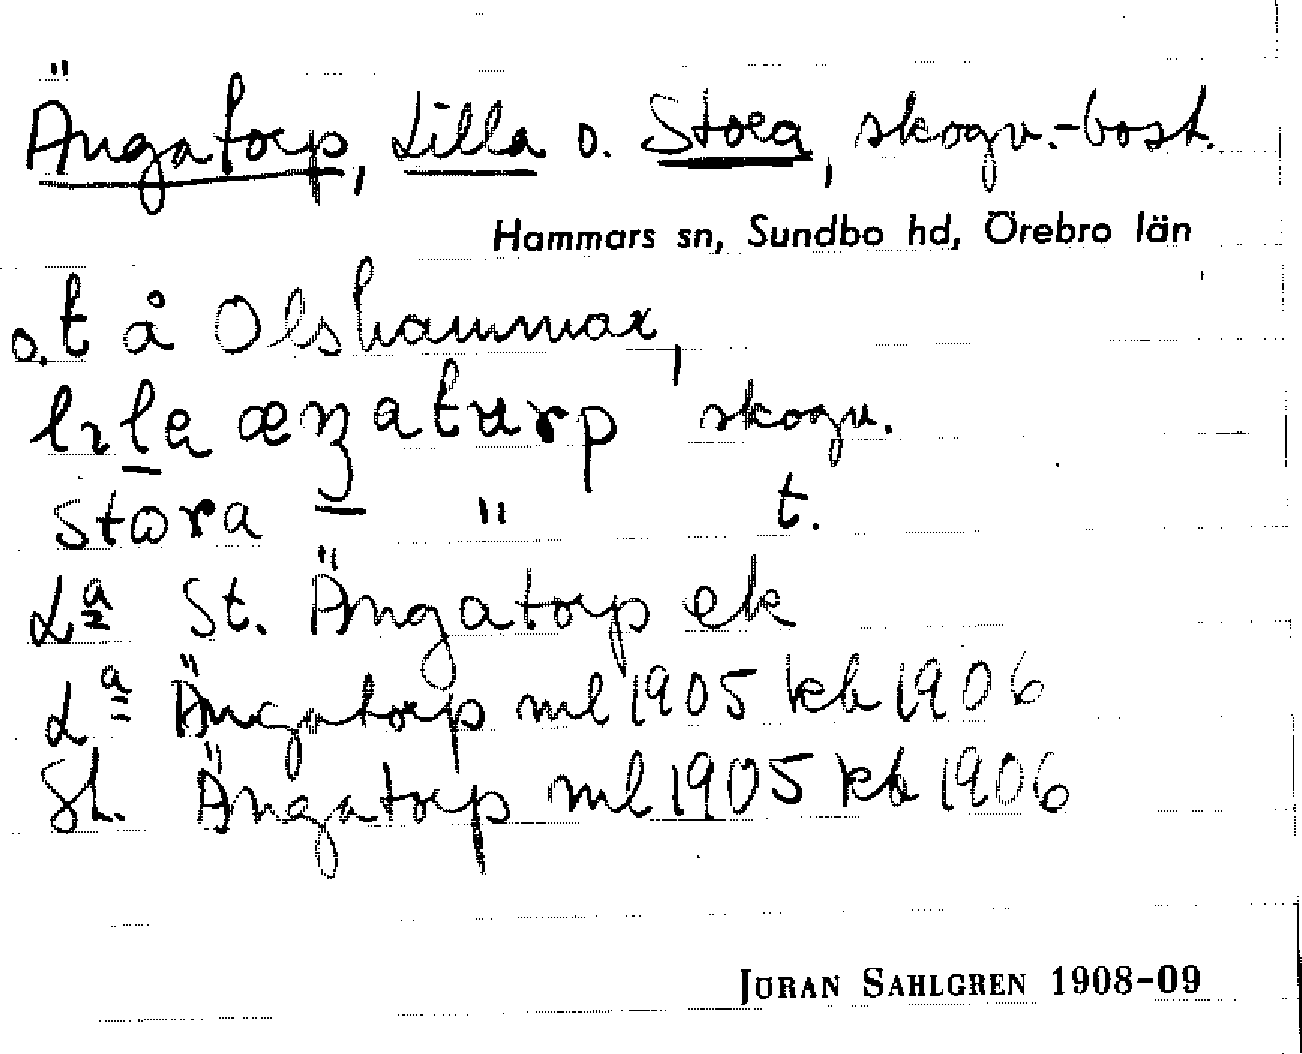 Ängatorp, Lilla o. Stora, skogv.-bost.
Hammars sn, Sundbo hd, Örebro län
o. t å Olshammar,
lɩla æŋatɯrp skogv.
stɷra – " t.
L<sup>a</sup> St. Ängatorp ek
L<sup>a</sup> Ängatorp ml 1905 kb 1906
St. Ängatorp ml 1905 kb 1906
JÖRAN SAHLGREN 1908-09